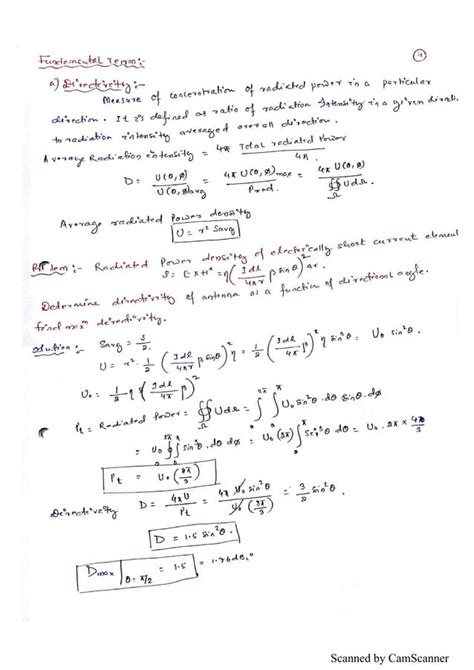 Fundemental Term:-
a) Directivity:-
Measure of concentration of radiated power in a particular
direction. It is defined as ratio of radiation Intensity in a given direction
to radiation intensity averaged over all direction.
Average Radiation intensity = Total radiated Power / 4π
D = U(θ,φ) / U(θ,φ)avg = 4π U(θ,φ)max / Prad. = 4π U(θ,φ) / ∯ U dΩ
Average radiated Power density
U = r² Savg
Problem:- Radiated Power density of electrically short current element
S = E×H* = η (I dl / 4πr β sinθ)² ar.
Determine directivity of antenna as a function of directional angle.
find maxm directivity.
Solution:- Savg = S/2
U = r² · 1/2 (I dl / 4πr β sinθ)² η = 1/2 (I dl / 4π β)² η sin²θ = U₀ sin²θ
U₀ = 1/2 η (I dl / 4π β)²
Pt = Radiated Power = ∯ U dΩ = ∫₀^2π ∫₀^π U₀ sin²θ · dθ sinθ · dφ
= U₀ ∫₀^2π ∫₀^π sin³θ dθ dφ = U₀ (2π) ∫₀^π sin³θ dθ = U₀ · 2π × 4/3
Pt = U₀ (8π/3)
Directivity D = 4πU / Pt = 4π U₀ sin²θ / U₀ (8π/3) = 3/2 sin²θ
D = 1.5 sin²θ.
Dmax | θ = π/2 = 1.5 = 1.76 dBi
Scanned by CamScanner